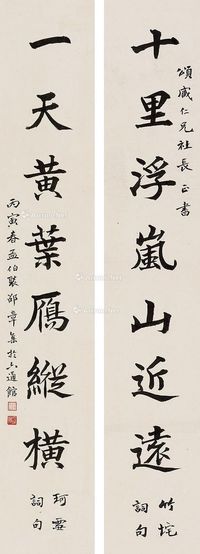 頌威仁兄社長正書
十里浮嵐山近遠
竹垞詞句
一天黃葉鴈縱橫
珂雪詞句
丙寅春孟伯褧邵章集於六通館